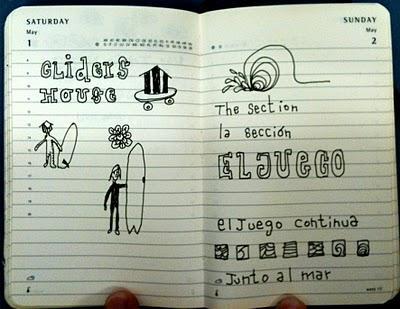 SATURDAY
May
1
GLiDERS
HOUSE
SUNDAY
May
2
The Section
la Sección
EL JUEGO
el Juego continua
Junto al mar